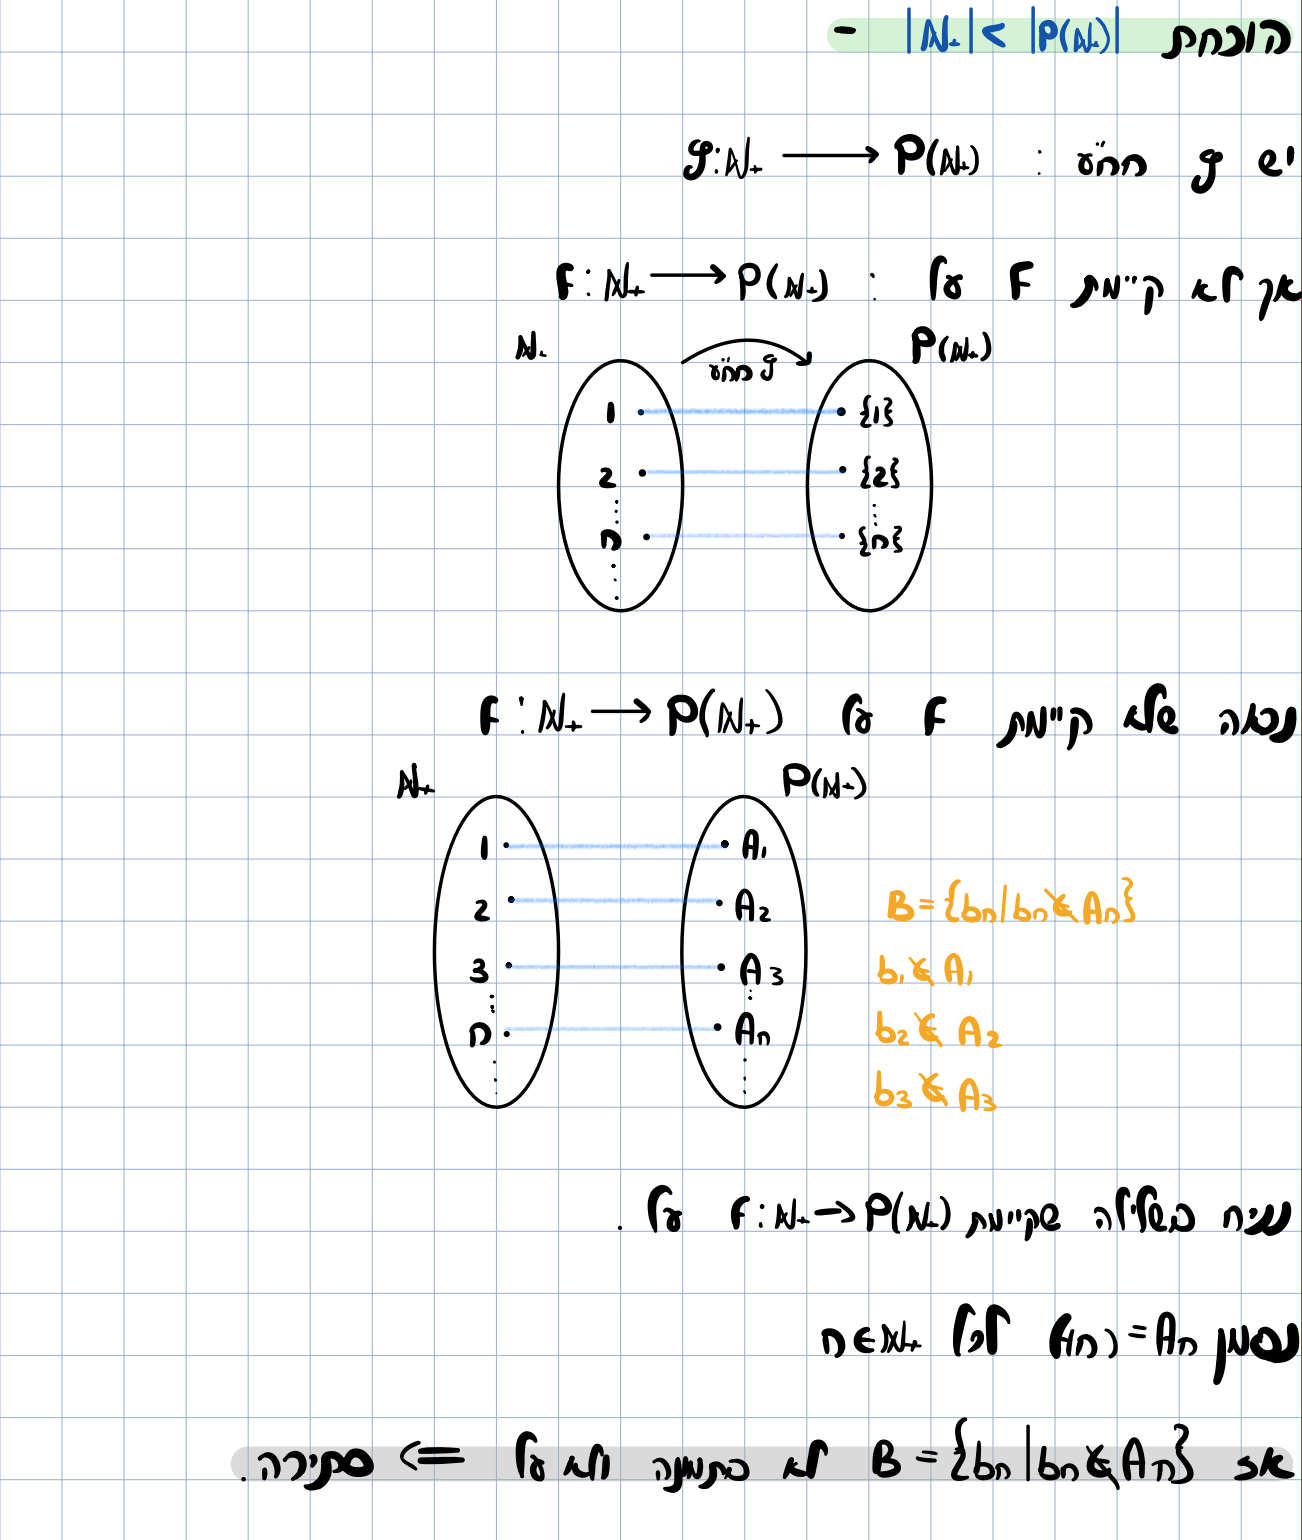 הוכחת |ℕ₊| < |P(ℕ₊)| -
יש g חח"ע : g: ℕ₊ → P(ℕ₊)
אך לא קיימת F על : F: ℕ₊ → P(ℕ₊)
ℕ₊ P(ℕ₊)
g חח"ע
1 {1}
2 {2}
n {n}
נראה שלא קיימת F על F: ℕ₊ → P(ℕ₊)
ℕ₊ P(ℕ₊)
1 A₁
2 A₂ B = {bₙ|bₙ∉Aₙ}
3 A₃ b₁∉A₁
n Aₙ b₂∉A₂
b₃∉A₃
נניח בשלילה שקיימת F: ℕ₊ → P(ℕ₊) על .
נסמן f(n) = Aₙ לכל n∈ℕ₊
אז B = {bₙ|bₙ∉Aₙ} לא בתמונה ולא על <= סתירה.